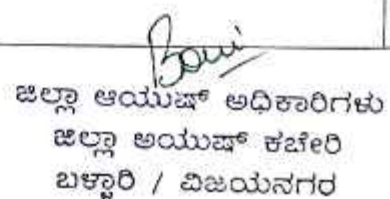 ಜಿಲ್ಲಾ ಆಯುಷ್ ಅಧಿಕಾರಿಗಳು
ಜಿಲ್ಲಾ ಆಯುಷ್ ಕಚೇರಿ
ಬಳ್ಳಾರಿ / ವಿಜಯನಗರ